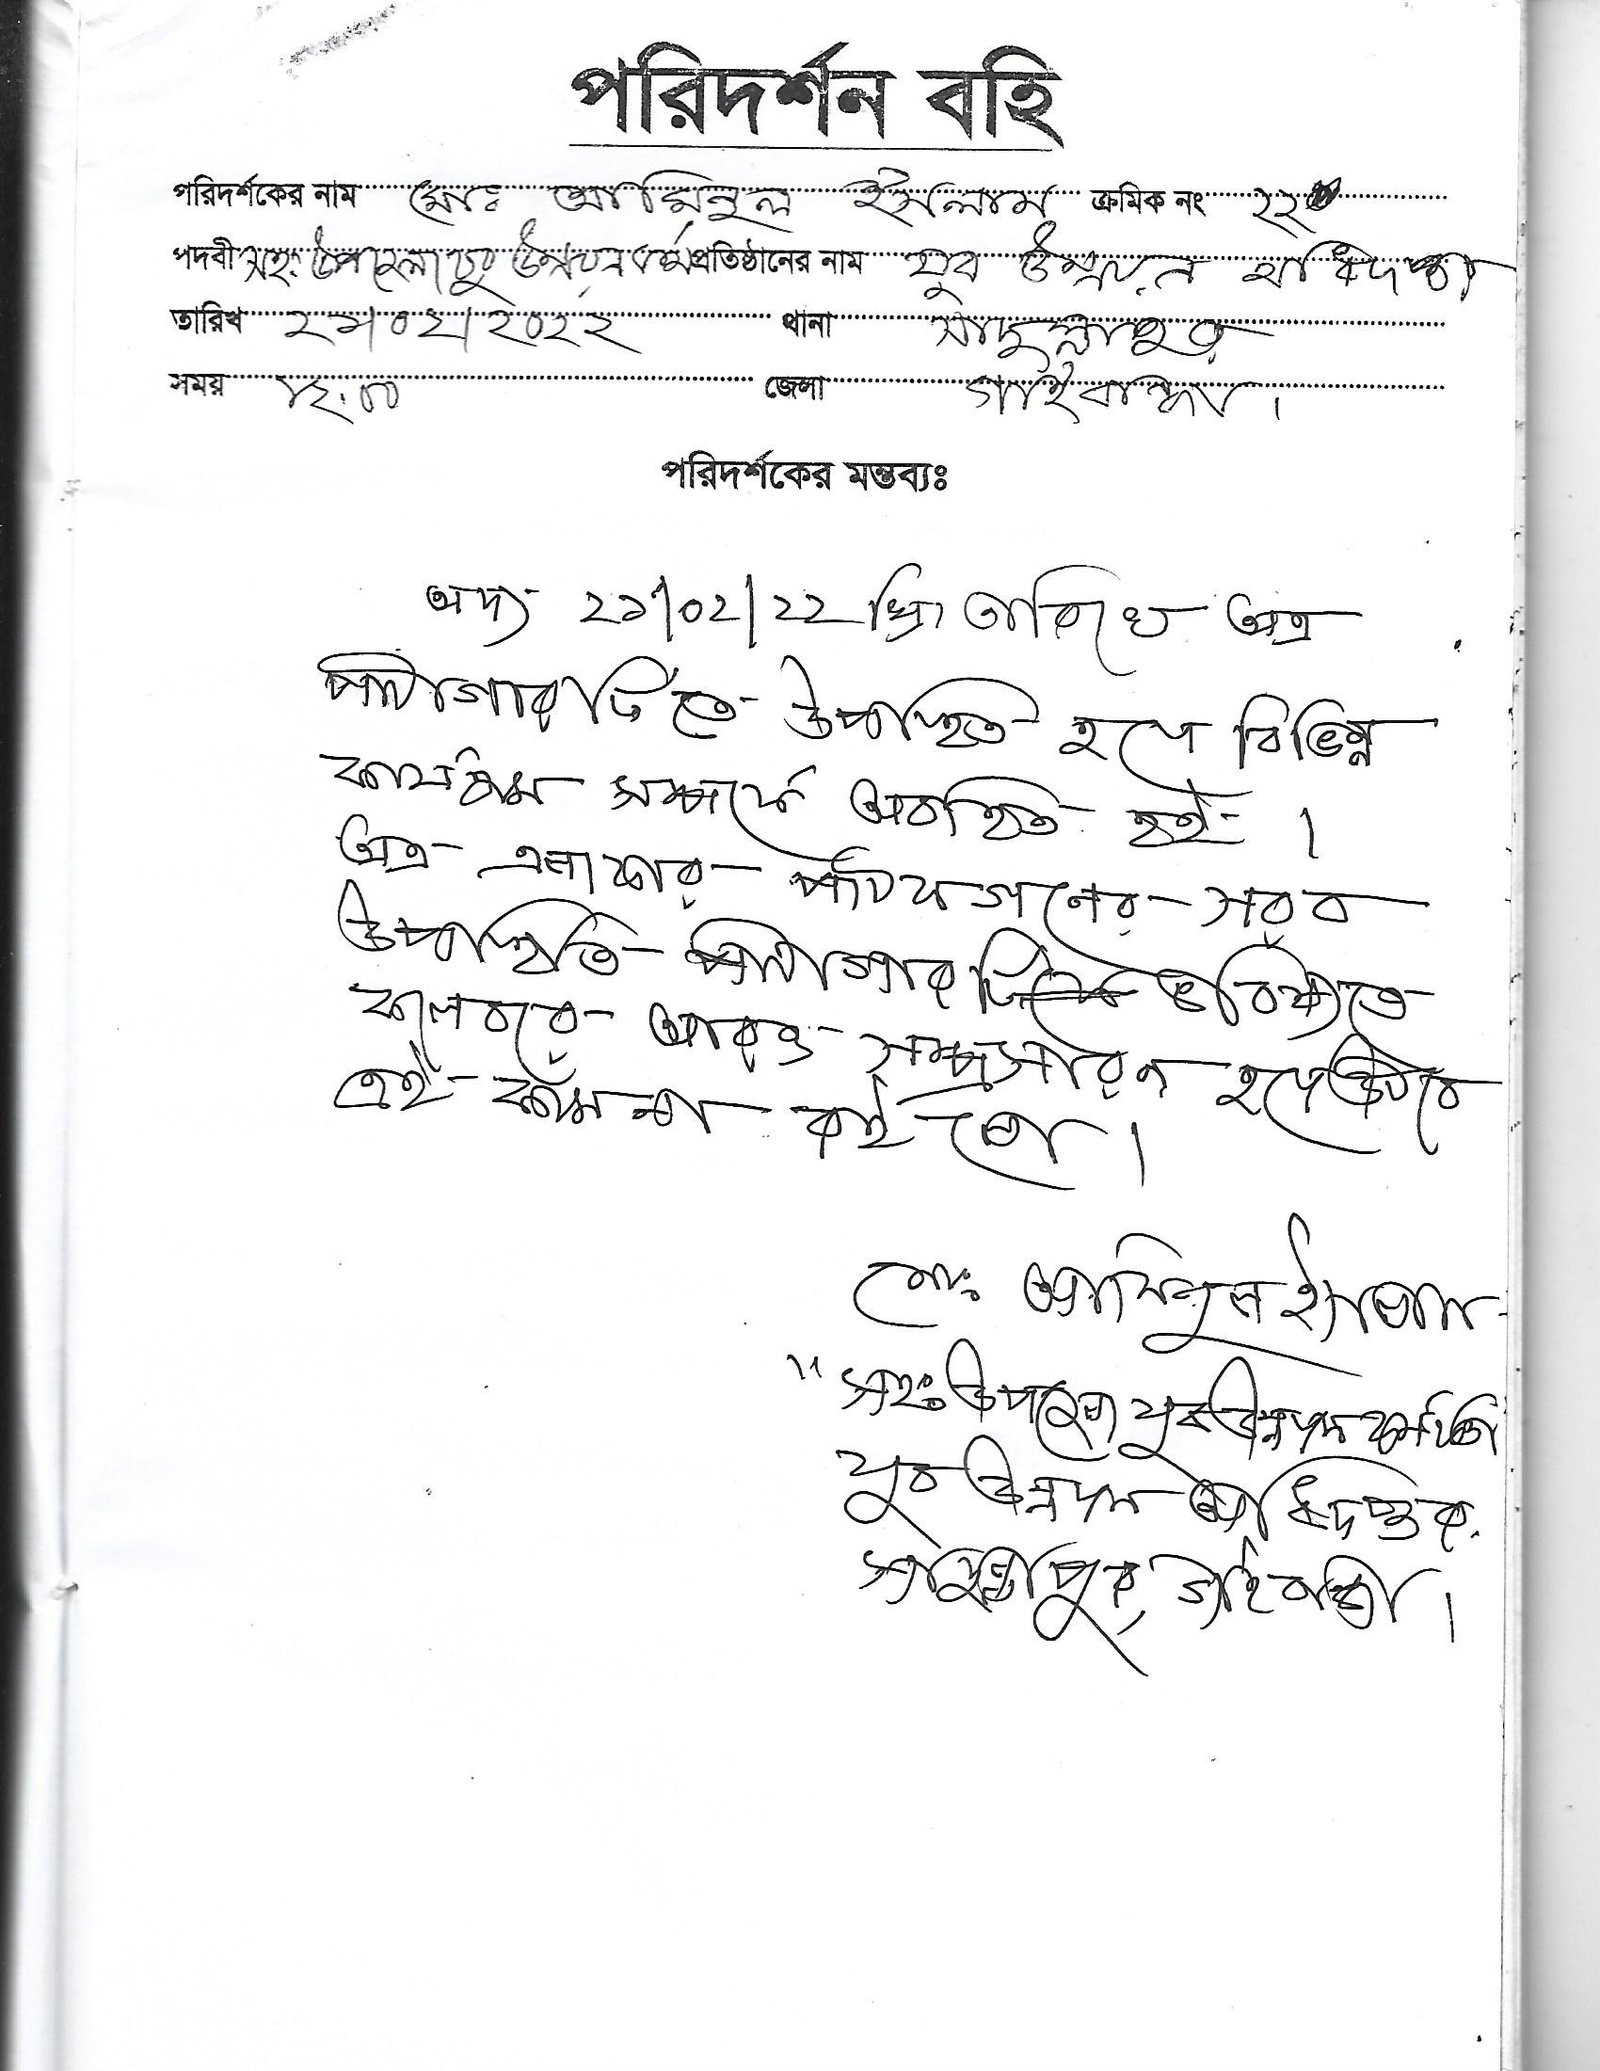 পরিদর্শন বহি
পরিদর্শকের নাম মোঃ আমিনুল ইসলাম ক্রমিক নং ২২
পদবী সহঃ উপজেলা যুব উন্নয়ন কর্ম প্রতিষ্ঠানের নাম যুব উন্নয়ন অধিদপ্তর
তারিখ ২১/০২/২০২২ থানা সাদুল্লাপুর
সময় ১২.০০ জেলা গাইবান্ধা।
পরিদর্শকের মন্তব্যঃ
অদ্য ২১/০২/২২ খ্রিঃ তারিখে অত্র
পাঠাগারটিতে উপস্থিত হয়ে বিভিন্ন
কার্যক্রম সম্পর্কে অবহিত হই।
অত্র এলাকার পাঠকগনের সরব
উপস্থিতি পাঠাগারটি ভবিষ্যতে
কলেবরে আরও সম্প্রসারন হয়ে উঠবে
এই কামনা করি
মোঃ আমিনুল ইসলাম
সহঃ উপজেলা যুব উন্নয়ন কর্মকর্তা
যুব উন্নয়ন অধিদপ্তর
সাদুল্লাপুর, গাইবান্ধা।